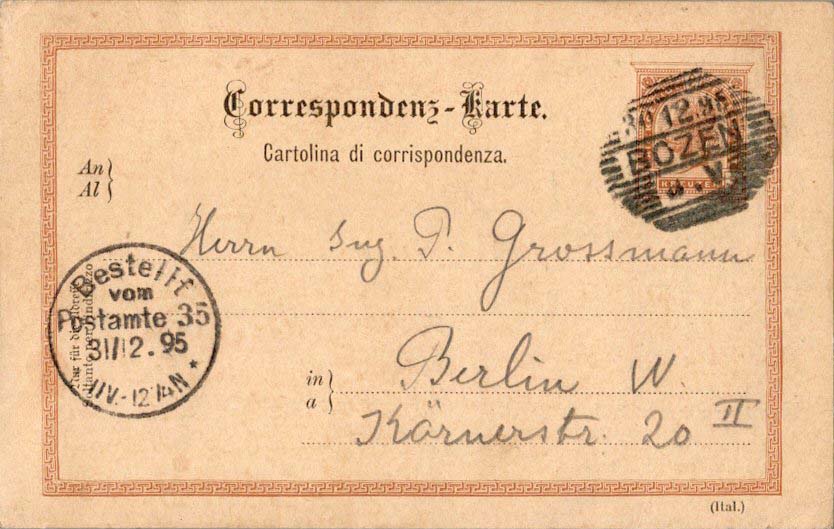 Correspondenz-Karte.
Cartolina di corrispondenza.
30 12.95
BOZEN
KREUZER
An
Al
Herrn Ing. P. Grossmann
Bestellt
vom
Postamte 35
31/12.95
12¼N *
in
a
Berlin W.
Körnerstr. 20 II
(Ital.)